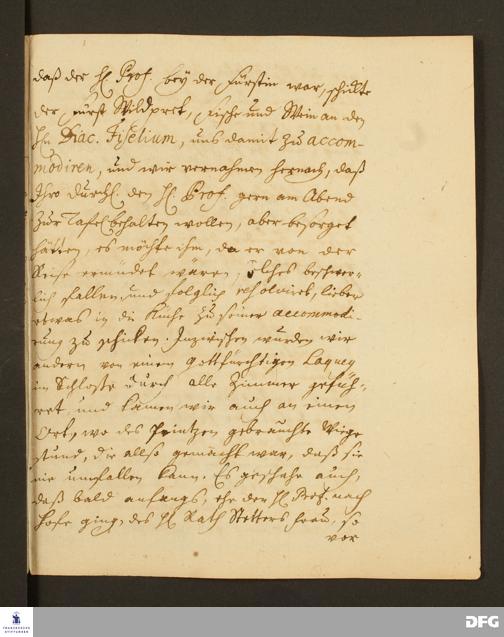 daß der H. Prof. bey der Fürstin war, schickte
der Fürst Wildpret, Fische und Wein an den
Hn Diac. Fiselium, uns damit zu accom-
modiren, und wir vernahmen hernach, daß
Ihro Durchl. den H. Prof. gern am Abend
zur Tafel behalten wollen, aber besorget
hätten, es möchte ihm, da er von der
Reise ermüdet wären, solches beschwer-
lich fallen, und folglich resolviret, lieber
etwas in die Küche zu seiner accommodi-
rung zu schicken. Inzwischen wurden wir
andern von einem gottfürchtigen Laquey
im Schlosse durch alle Zimmer gefüh-
ret, und kamen wir auch an einen
Ort, wo des Printzen gebrauchte Wiege
stund, die allso gemacht war, daß sie
nie umfallen kann. Es geschahe auch,
daß bald anfangs, ehe der H. Prof. nach
Hofe ging, des H. Rath Stetters Frau, so
vor
FRANCKESCHE
STIFTUNGEN
DFG